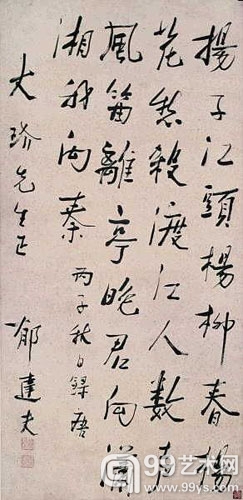 揚子江頭楊柳春楊
花愁殺渡江人數聲
風笛離亭晚君向瀟
湘我向秦
丙子秋日錄唐
大珍先生正
郁達夫
99艺术网
www.99ys.com